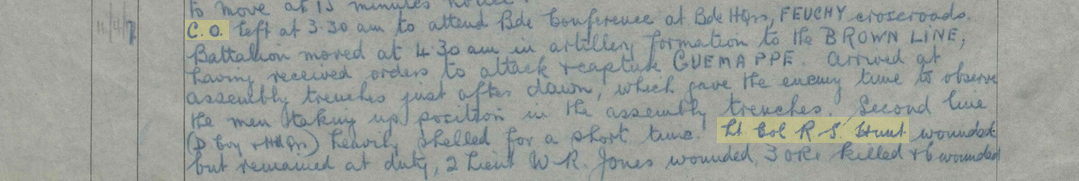 to move at 15 minutes notice.
11/4/17 C.O. left at 3.30 am to attend Bde Conference at Bde Hqrs, FEUCHY crossroads.
Battalion moved at 4 30 am in artillery formation to the BROWN LINE,
having received orders to attack & capture GUEMAPPE. Arrived at
assembly trenches just after dawn, which gave the enemy time to observe
the men taking up position in the assembly trenches. Second line
(D Coy & Hd Qrs) heavily shelled for a short time. Lt Col R.S. Hunt wounded
but remained at duty, 2 Lieut W.R. Jones wounded, 3 ORs killed & 6 wounded